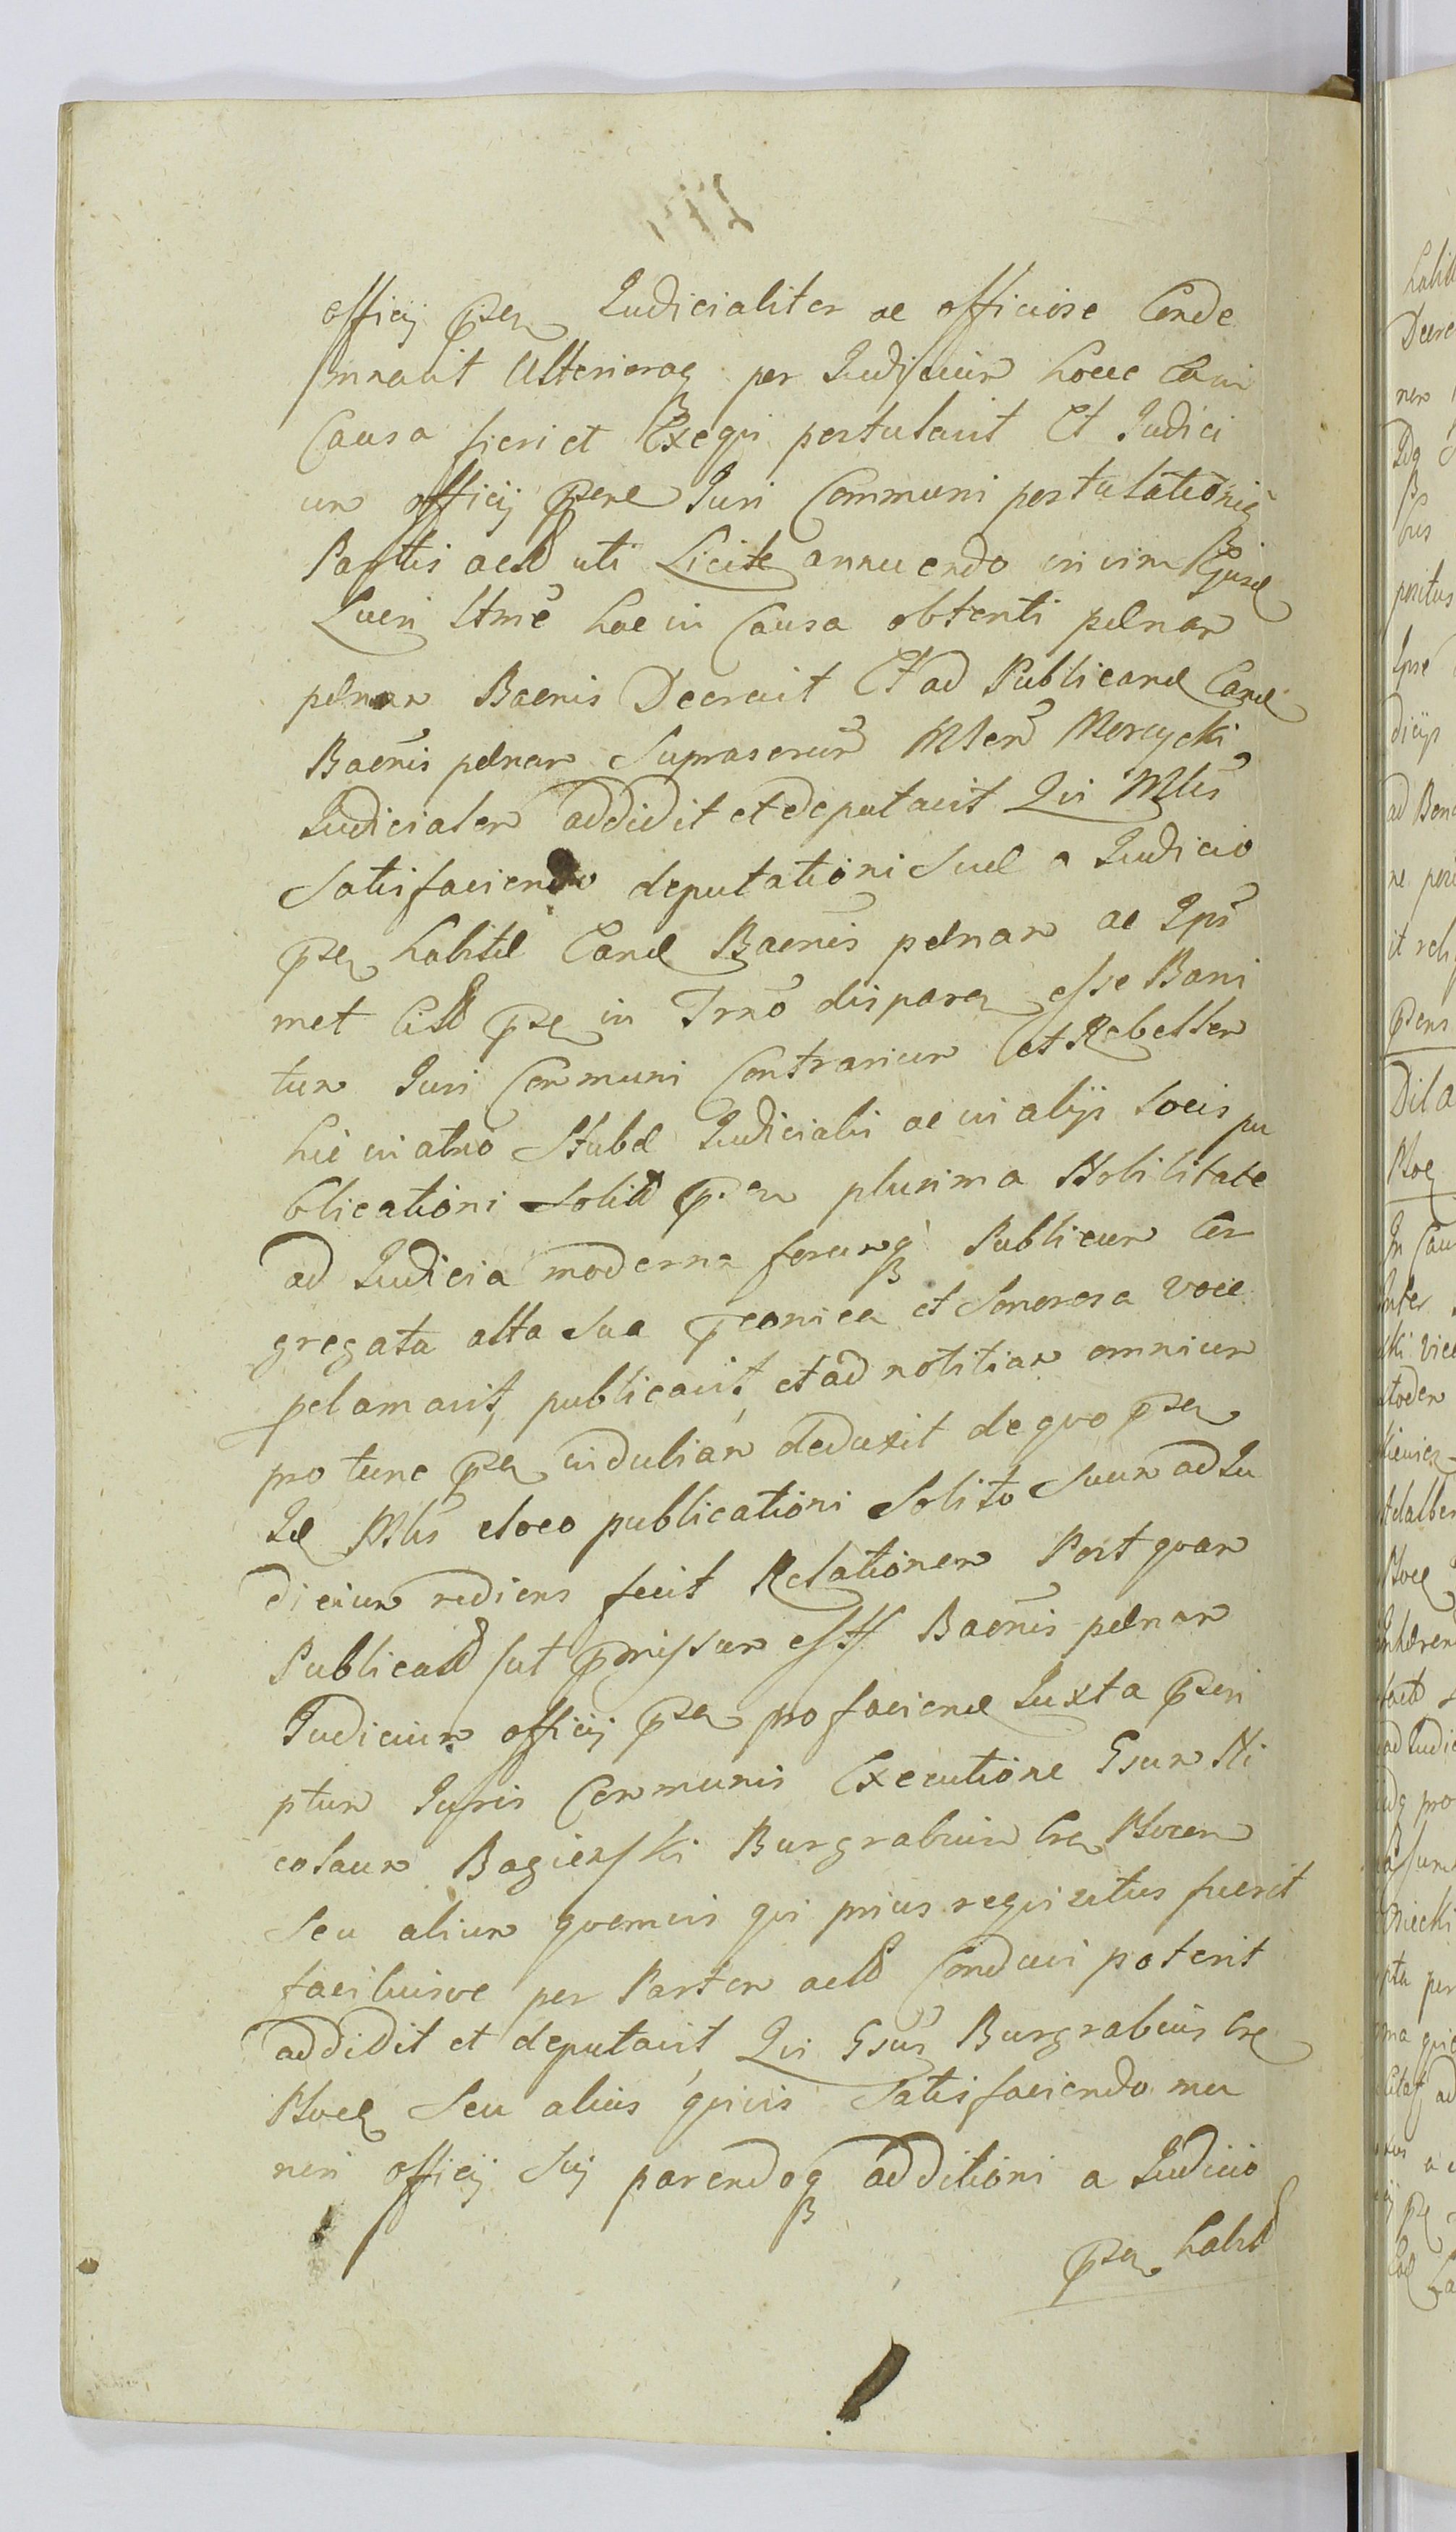 officij pse Judicialiter ac officiose Conde
mnavit Ulterioraq per Judicium hocce in
Causa fieri et Exequi postulavit Et Judici
um officij psens Juri Communi postulationiq
Partis actae uti Licitae annuendo in vim
Lucri hac in Causa obtenti pelnam
pelnam Baenis Decrevit Et ad Publicand Eand
Baenis pelnam suprascrtum Mlem Morzycki
Judicialem addidit et deputavit Qui Mlis
Satisfaciendo deputationi Suae a Judicio
pse habitae Eand Baenis pelnam ac Ips
met Citt pse in Trno disparen esse Bani
tum Juri Communi Contrarium et Rebellem
hic in atrio Stubae Judicialis ac in alijs locis pu
blicationi solit psen plurima Nobilitate
ad Judicia moderna forumq Publicum Con
gregata alta sua pconica et sonorosa voce
pclamavit, publicavit, et ad notitiam omnium
pro tunc pse indubiam deduxit de quo pse
Id Mlis e loco publicationi Solito Suum ad Ju
dicium rediens fecit Relationem Post quam
Publicatt sut pmissum est Baenis pelnam
Judicium officij pse pro faciend Juxta pscri
ptum Juris Communis Executione Gsum Ni
colaum Bagieński Burgrabium Cre Plocen
seu alium quemvis qui prius requisitus fuerit
faciliusve per Partem actt Conduci poterit
addidit et deputavit Qui Gsus Burgrabius Cre
Ploce seu alius quivis Satisfaciendo mu
neri officij sui parendoq additioni a Judicio
pse habit